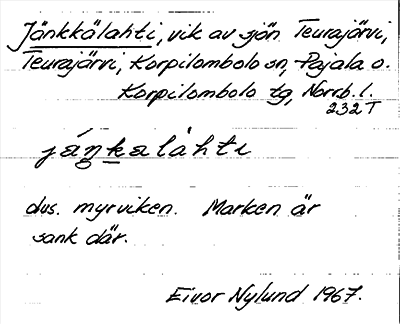 Jänkkälahti, vik av sjön Teurajärvi,
Teurajärvi, Korpilombolo sn, Pajala o.
Korpilombolo tg, Norrb. l.
232 T
jáŋkalàhti
dvs. myrviken. Marken är
sank där.
Eivor Nylund 1967.